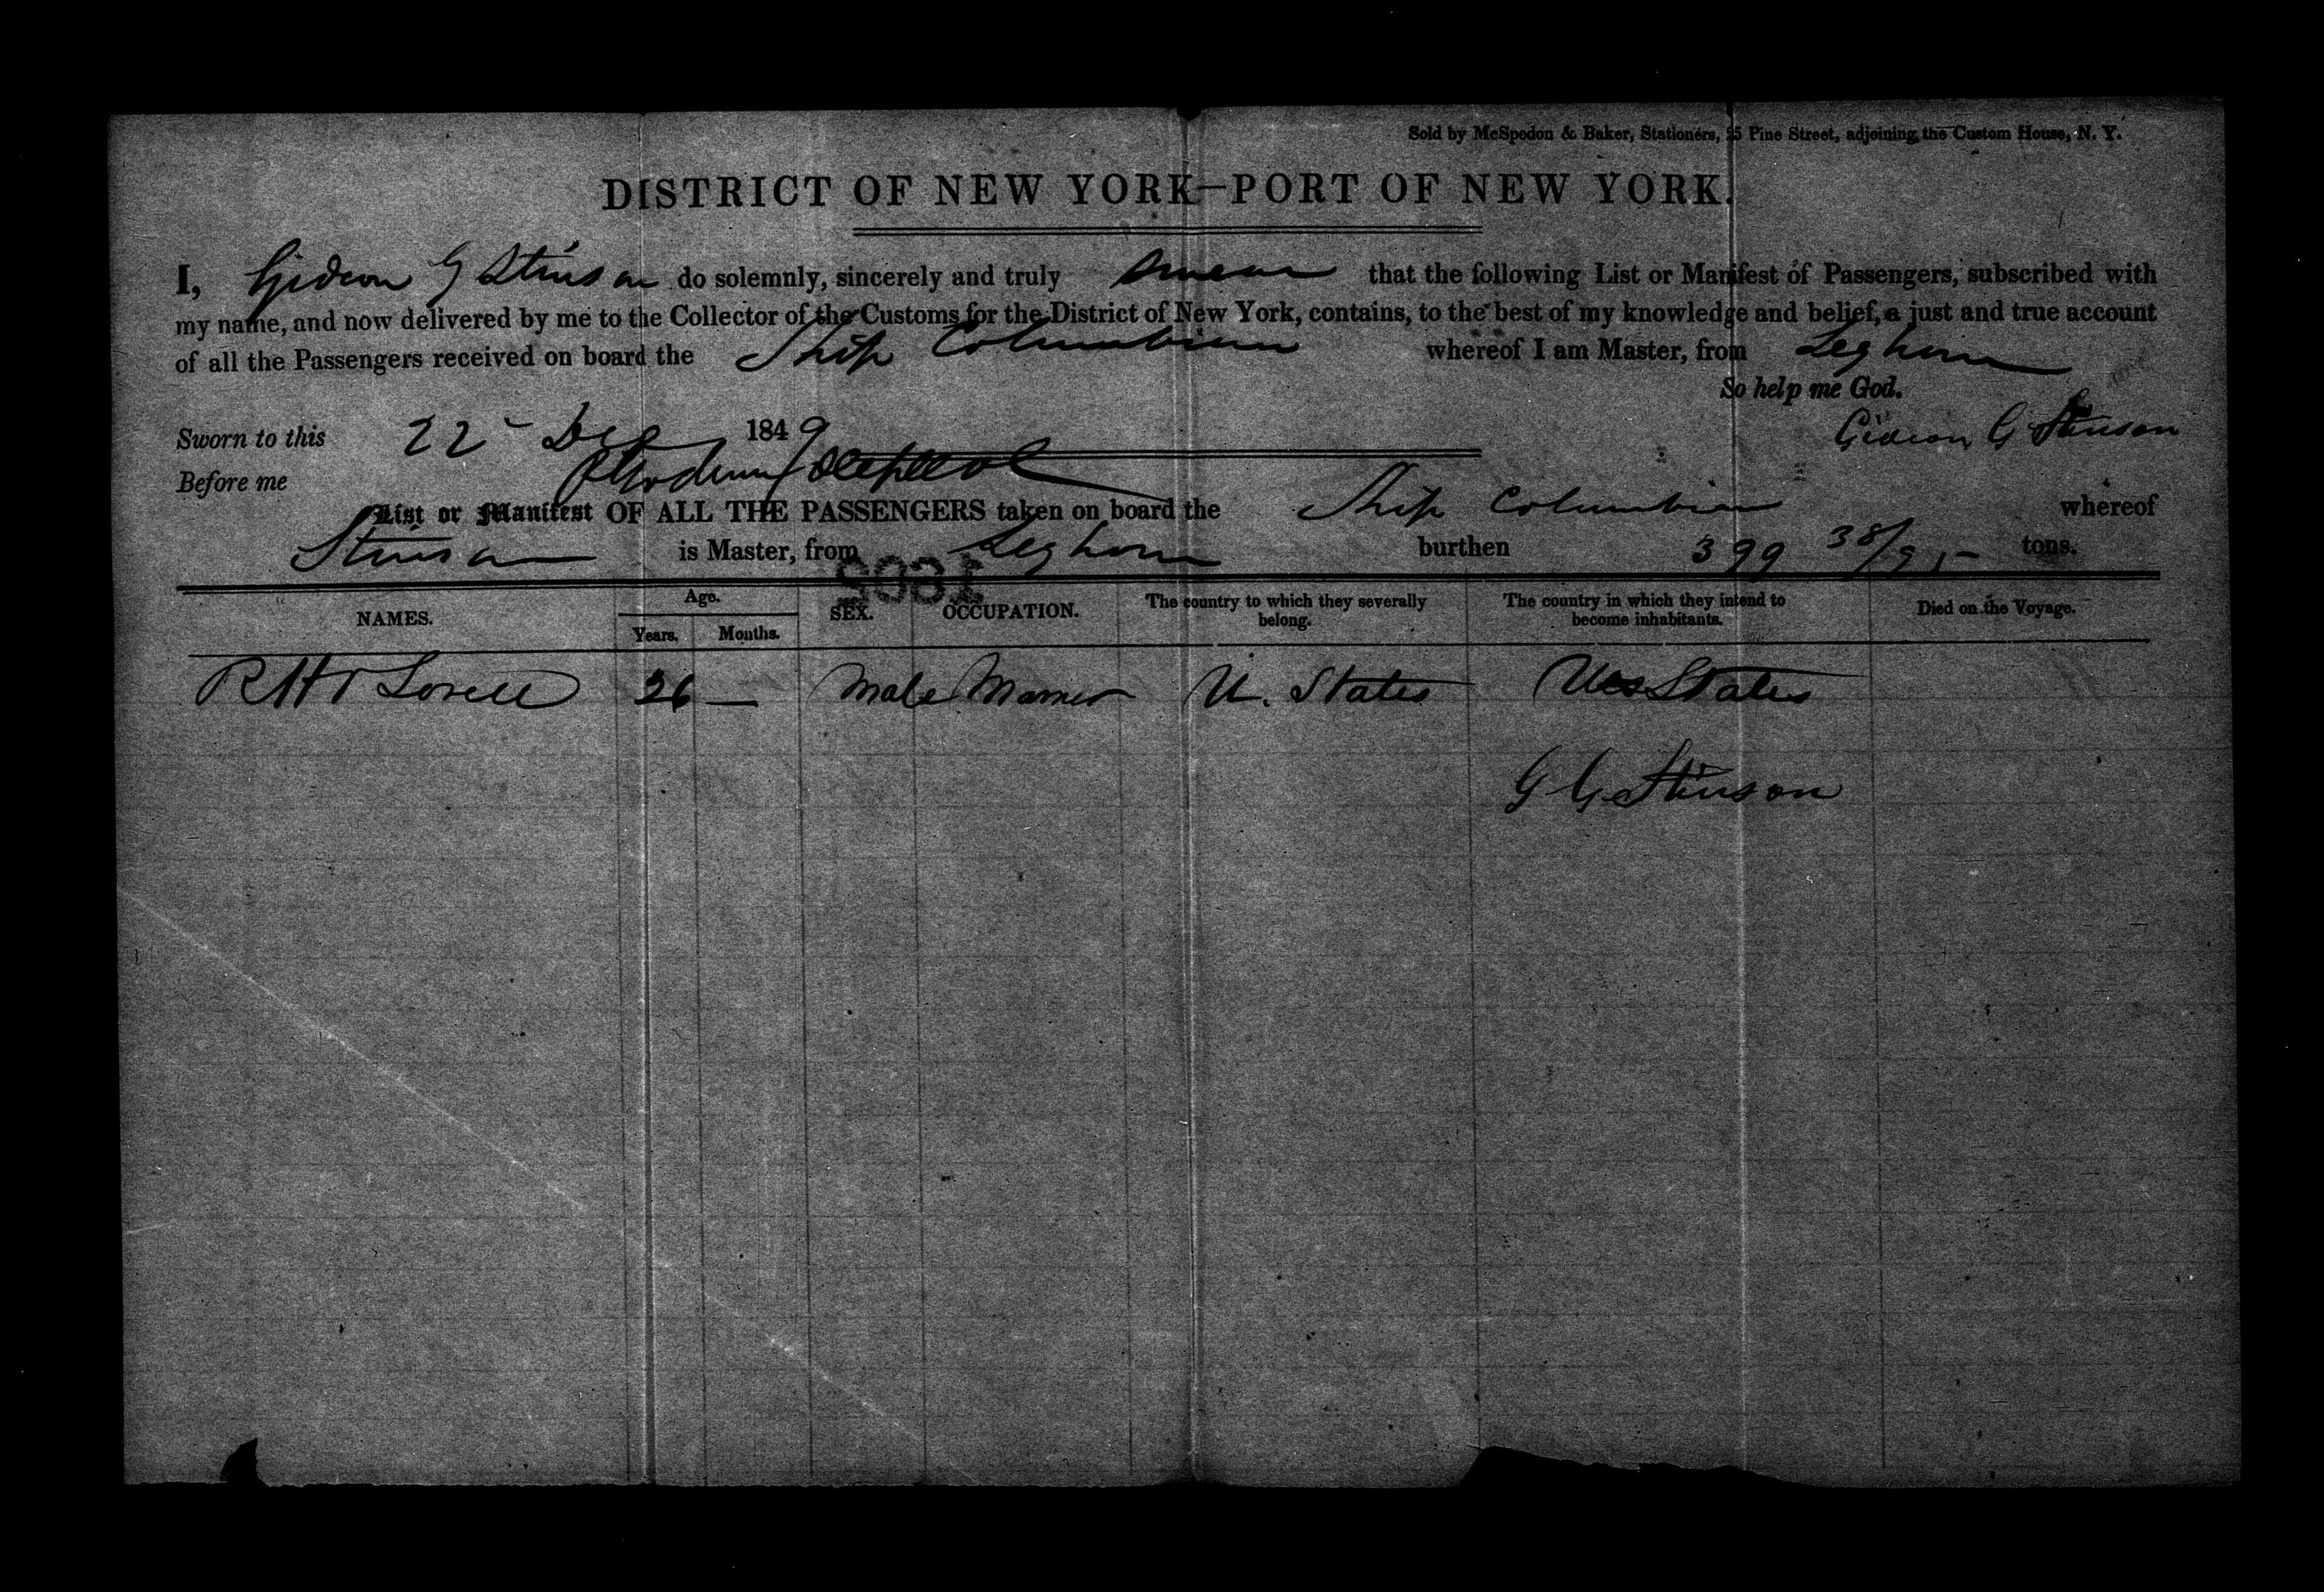 Sold by McSpedon & Baker, Stationers, 25 Pine Street, adjoining the Custom House, N. Y.
DISTRICT OF NEW YORK—PORT OF NEW YORK.
I, Gideon G Stinson do solemnly, sincerely and truly swear that the following List or Manifest of Passengers, subscribed with
my name, and now delivered by me to the Collector of the Customs for the District of New York, contains, to the best of my knowledge and belief, a just and true account
of all the Passengers received on board the Ship Columbian whereof I am Master, from Leghorn
So help me God.
Sworn to this 22 Dec 1849 Gideon G Stinson
Before me
List or Manifest OF ALL THE PASSENGERS taken on board the Ship Columbian whereof
Stinson is Master, from Leghorn burthen 399 38/95 tons.
1605
NAMES. Age. Years. Months. SEX. OCCUPATION. The country to which they severally belong. The country in which they intend to become inhabitants. Died on the Voyage.
Lovell 26 — Male Mariner U. States States
G G Stinson